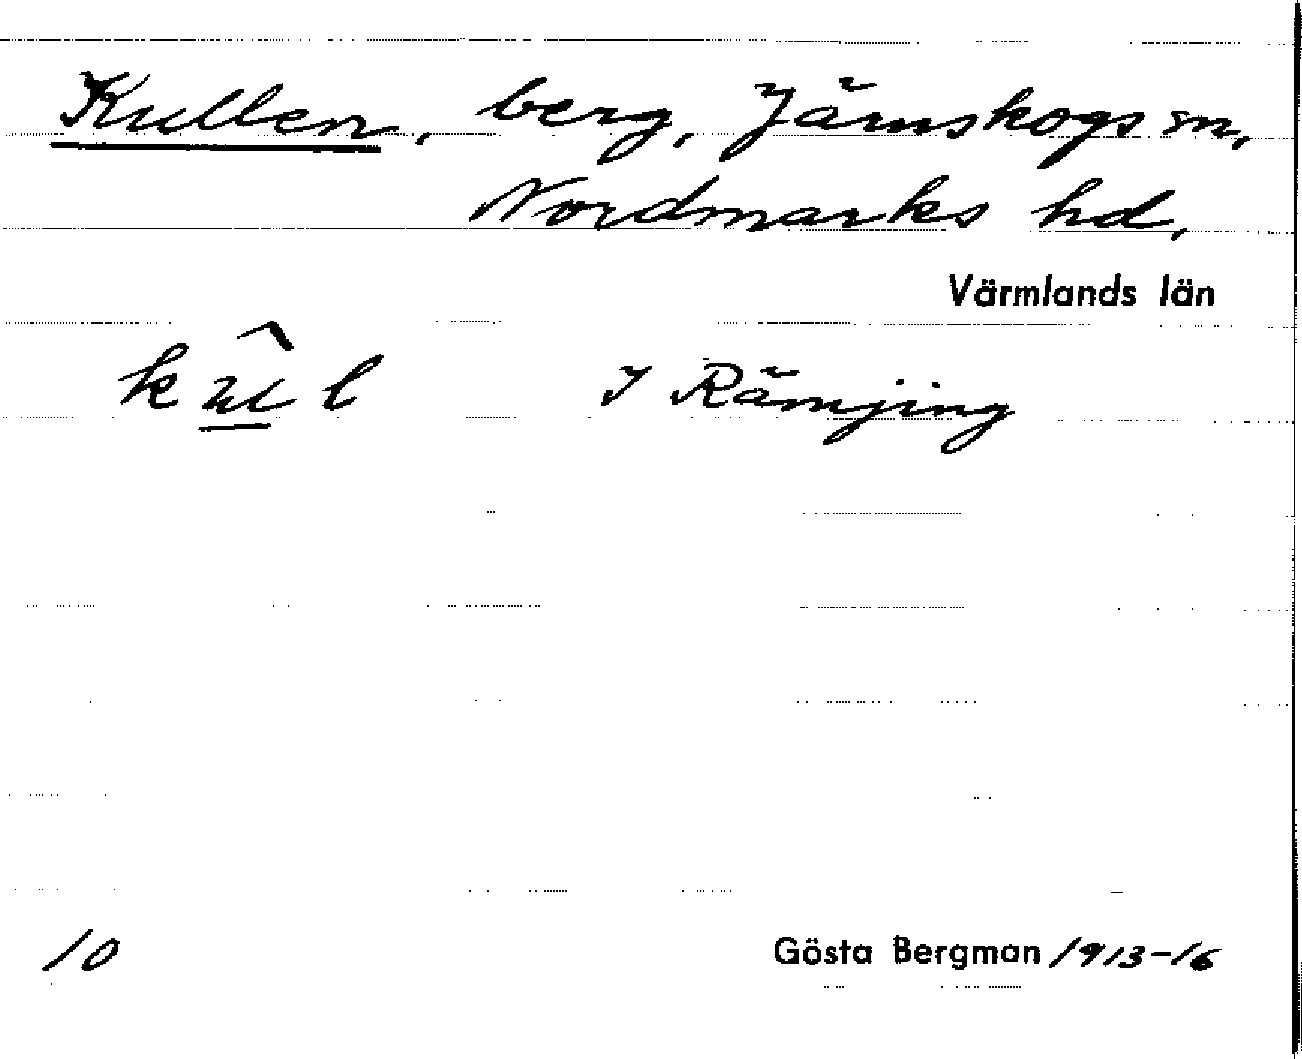 Kullen, berg, Järnskogs sn,
Nordmarks hd,
Värmlands län
I Rämjing
10 Gösta Bergman 1913-16